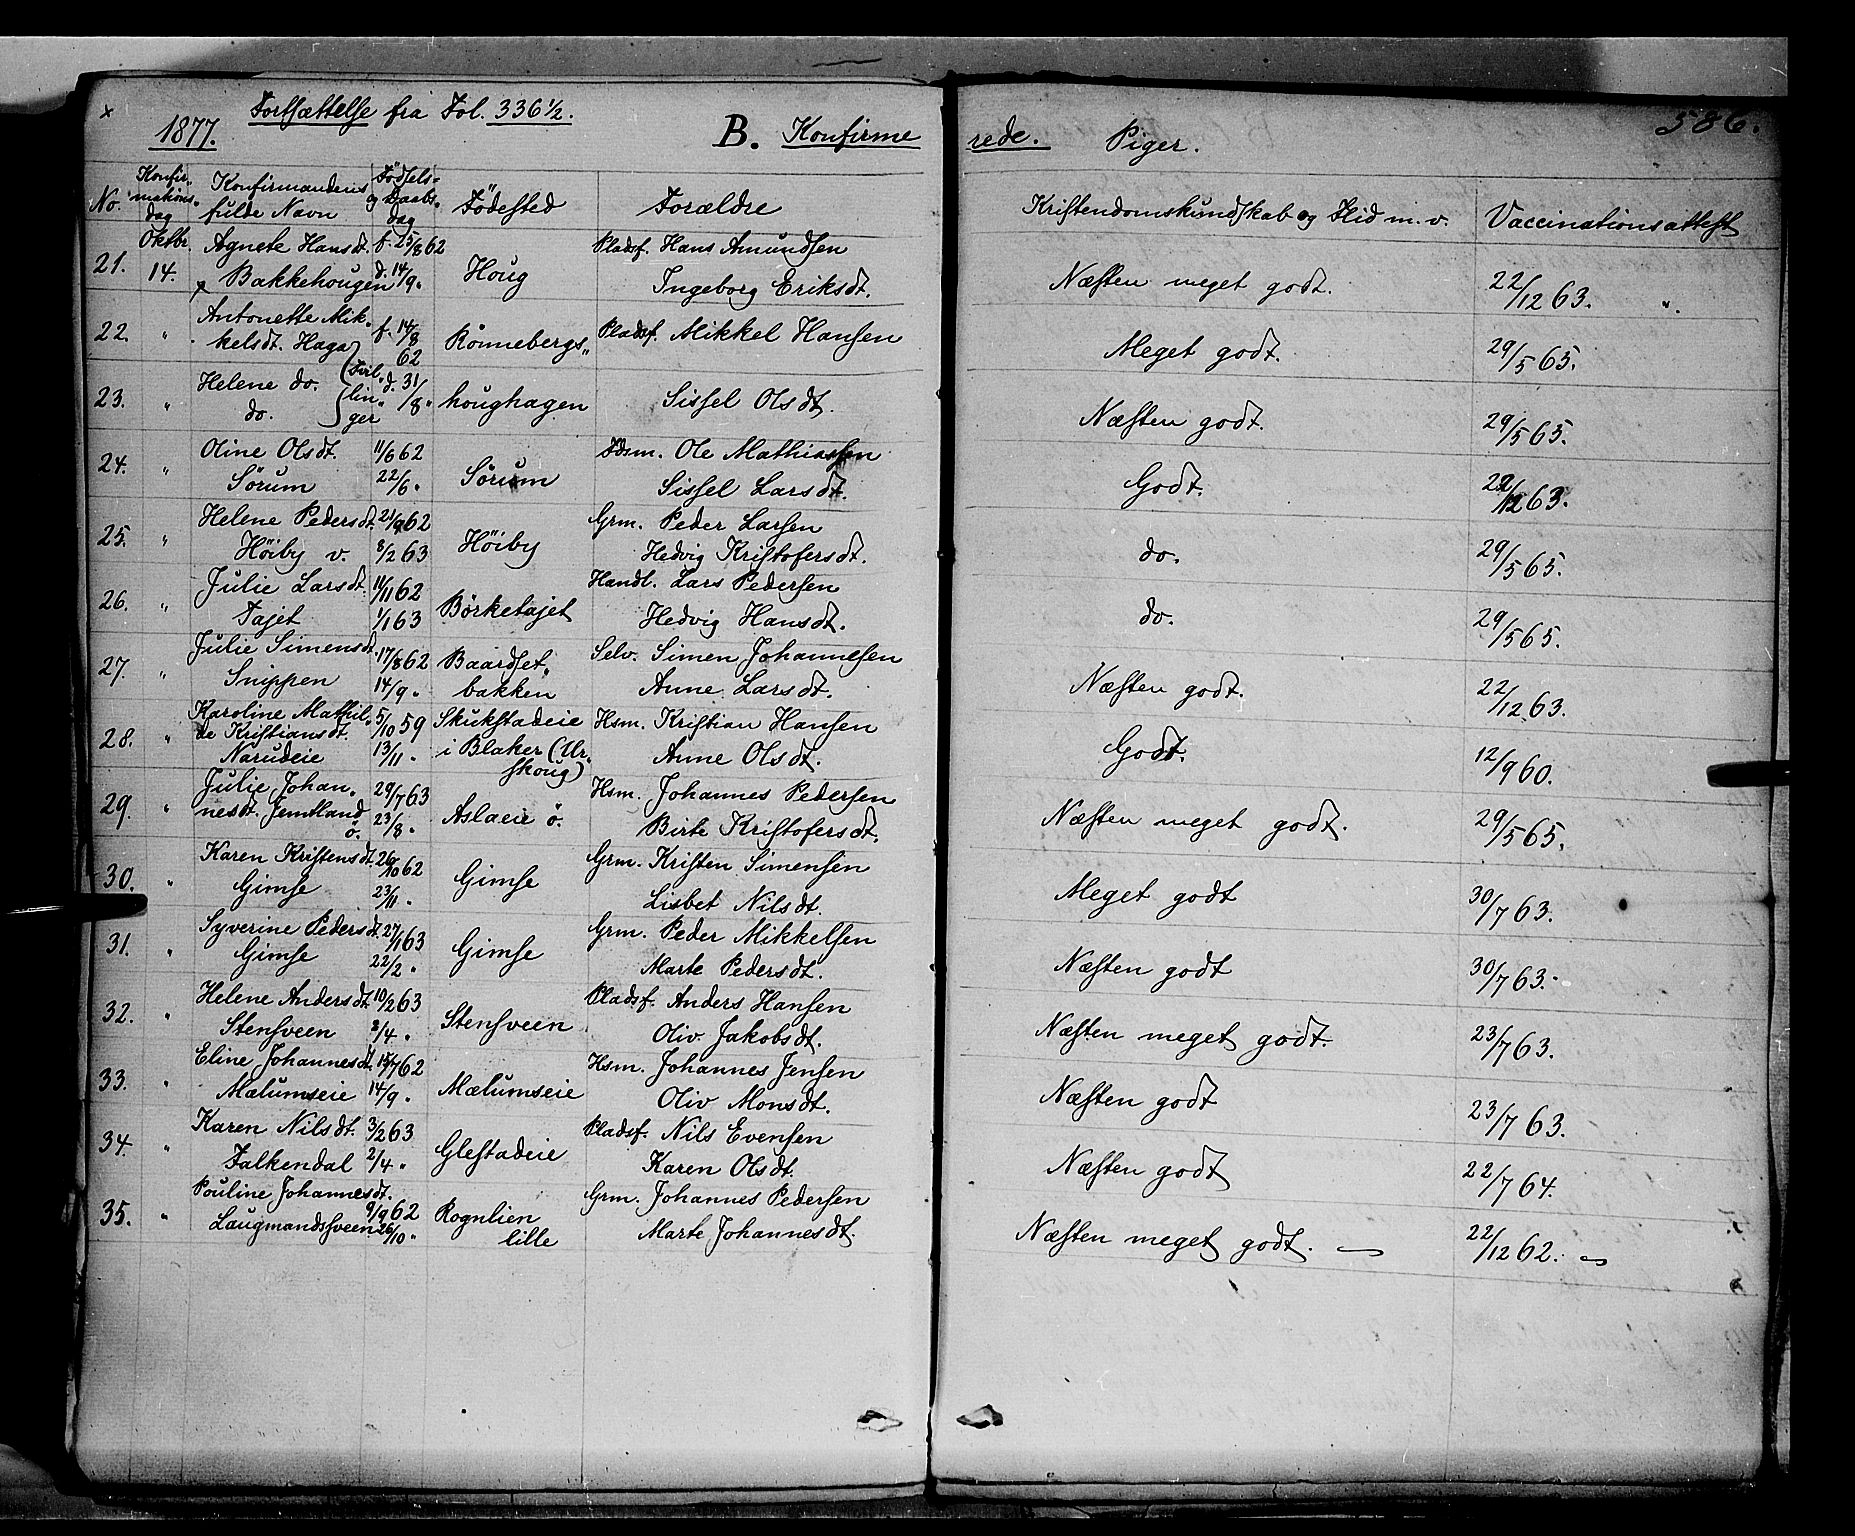 Fortsættelse fra Fol. 336½.
1877.
B. Konfirmerede. Piger.
586.
No. Konfirmationsdag Konfirmandens fulde Navn Fødsels- og Daabsdag Fødested Forældre Kristendomskundskab og Flid m. v. Vaccinationsattest
Oktbr. Agnete Hansdt. f. 25/8 62 Pladsf. Hans Amundsen
21. 14. Bakkehougen d. 14/9 „ Houg Ingeborg Eriksdt. Næsten meget godt. 22/12 63. „
Antonette Mik-
22. „ kelsdt. Haga f. 14/8 62 Rönnebergs„ Pladsf. Mikkel Hansen Meget godt. 29/5 65.
23. „ Helene do. do. (Tvillinger) d. 31/8 „ houghagen Sissel Olsdt. Næsten godt. 29/5 65.
Oline Olsdt. 11/6 62 Hsm. Ole Mathiassen
24. „ Sörum 22/6 „ Sörum Sissel Larsdt. Godt. 22/12 63.
Helene Pedersdt. 21/9 62 Grm. Peder Larsen
25. „ Höiby v. 8/2 63 Höiby Hedvig Kristofersdt. do. 29/5 65.
Julie Larsdt. 11/11 62 Handl. Lars Pedersen
26. „ Tajet 1/1 63 Börketajet Hedvig Hansdt. do. 29/5 65.
Julie Simensdt. 17/8 62 Baardset„ Selv. Simen Johannesen
27. „ Snippen 14/9 „ bakken Anne Larsdt. Næsten godt. 22/12 63.
Karoline Mathil- 5/10 59 Skukstadeie Hsm. Kristian Hansen
28. „ de Kristiansdt. Narudeie 13/11 „ i Blaker (Urskoug) Anne Olsdt. Godt. 12/9 60.
Julie Johan- 29/7 63 Hsm. Johannes Pedersen
29. „ nesdt. Jemtland ö. 23/8 „ Aslaeie ö. Birte Kristofersdt. Næsten meget godt. 29/5 65.
Karen Kristensdt. 26/10 62 Grm. Kristen Simensen
30. „ Gimse 23/11 „ Gimse Lisbet Nilsdt. Meget godt 30/7 63.
Syverine Pedersdt. 27/1 63 Grm. Peder Mikkelsen
31. „ Gimse 22/2 „ Gimse Marte Pedersdt. Næsten godt 30/7 63.
Helene Andersdt. 10/2 63 Pladsf. Anders Hansen
32. „ Stensveen 8/4 „ Stensveen Oliv. Jakobsdt. Næsten meget godt. 23/7 63.
Eline Johannesdt. 15/7 62 Hsm. Johannes Jensen
33. „ Mælumseie 14/9 „ Mælumseie Oliv Monsdt. Næsten godt 23/7 63.
Karen Nilsdt. 3/2 63 Pladsf. Nils Evensen
34. „ Falkendal 2/4 „ Glestadeie Karen Olsdt. Næsten godt 22/7 64.
Pouline Johannesdt. 9/9 62 Rognlien Grm. Johannes Pedersen
35. „ Laugmandssveen 26/10 „ lille Marte Johannesdt. Næsten meget godt. 22/12 62.